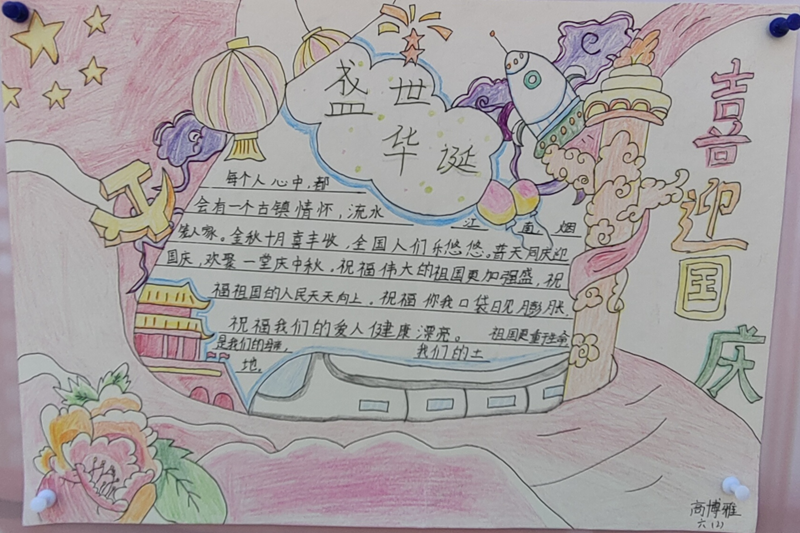 盛世
华诞
喜迎国庆
每个人心中，都
会有一个古镇情怀，流水 江南烟
人家。金秋十月喜丰收，全国人们乐悠悠。普天同庆迎
国庆，欢聚一堂庆中秋。祝福伟大的祖国更加强盛，祝
福祖国的人民天天向上。祝福你我口袋日见月彭月长，
祝福我们的爱人健康漂亮。 祖国更重于生命
是我们的母亲， 我们的土
地。
商博雅
六(2)